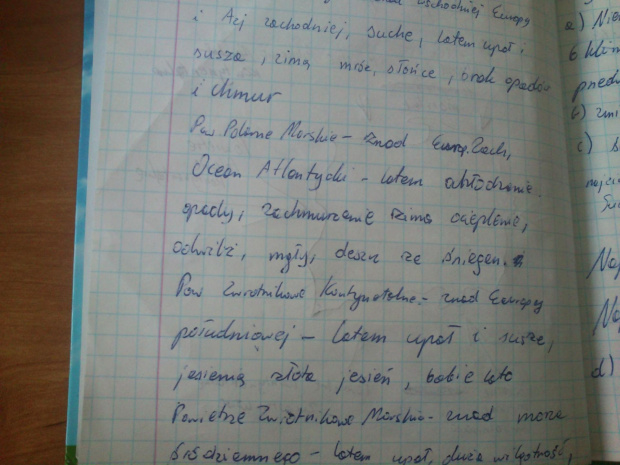 wschodniej Europy
i Azj zachodniej, suche, latem upał i
susza, zimą mróz, słońce, brak opadów
i chmur
Pow. Polarne Morskie - znad Europ. Zach,
Ocean Atlantycki - latem ochłodzenie
opady, zachmurzenie zimą ocieplenie,
odwilż, mgły, deszcz ze śniegem.
Pow Zwrotnikowe Kontynetalne - znad Europy
południowej - latem upał i susze,
jesienią złota jesień, babie lato
Powietrze Zwrotnikowo Morskie - znad morza
śródziemnego - latem upał, duża wilgotność,
a) Nie
6 klim
b) zmi
c)
d)